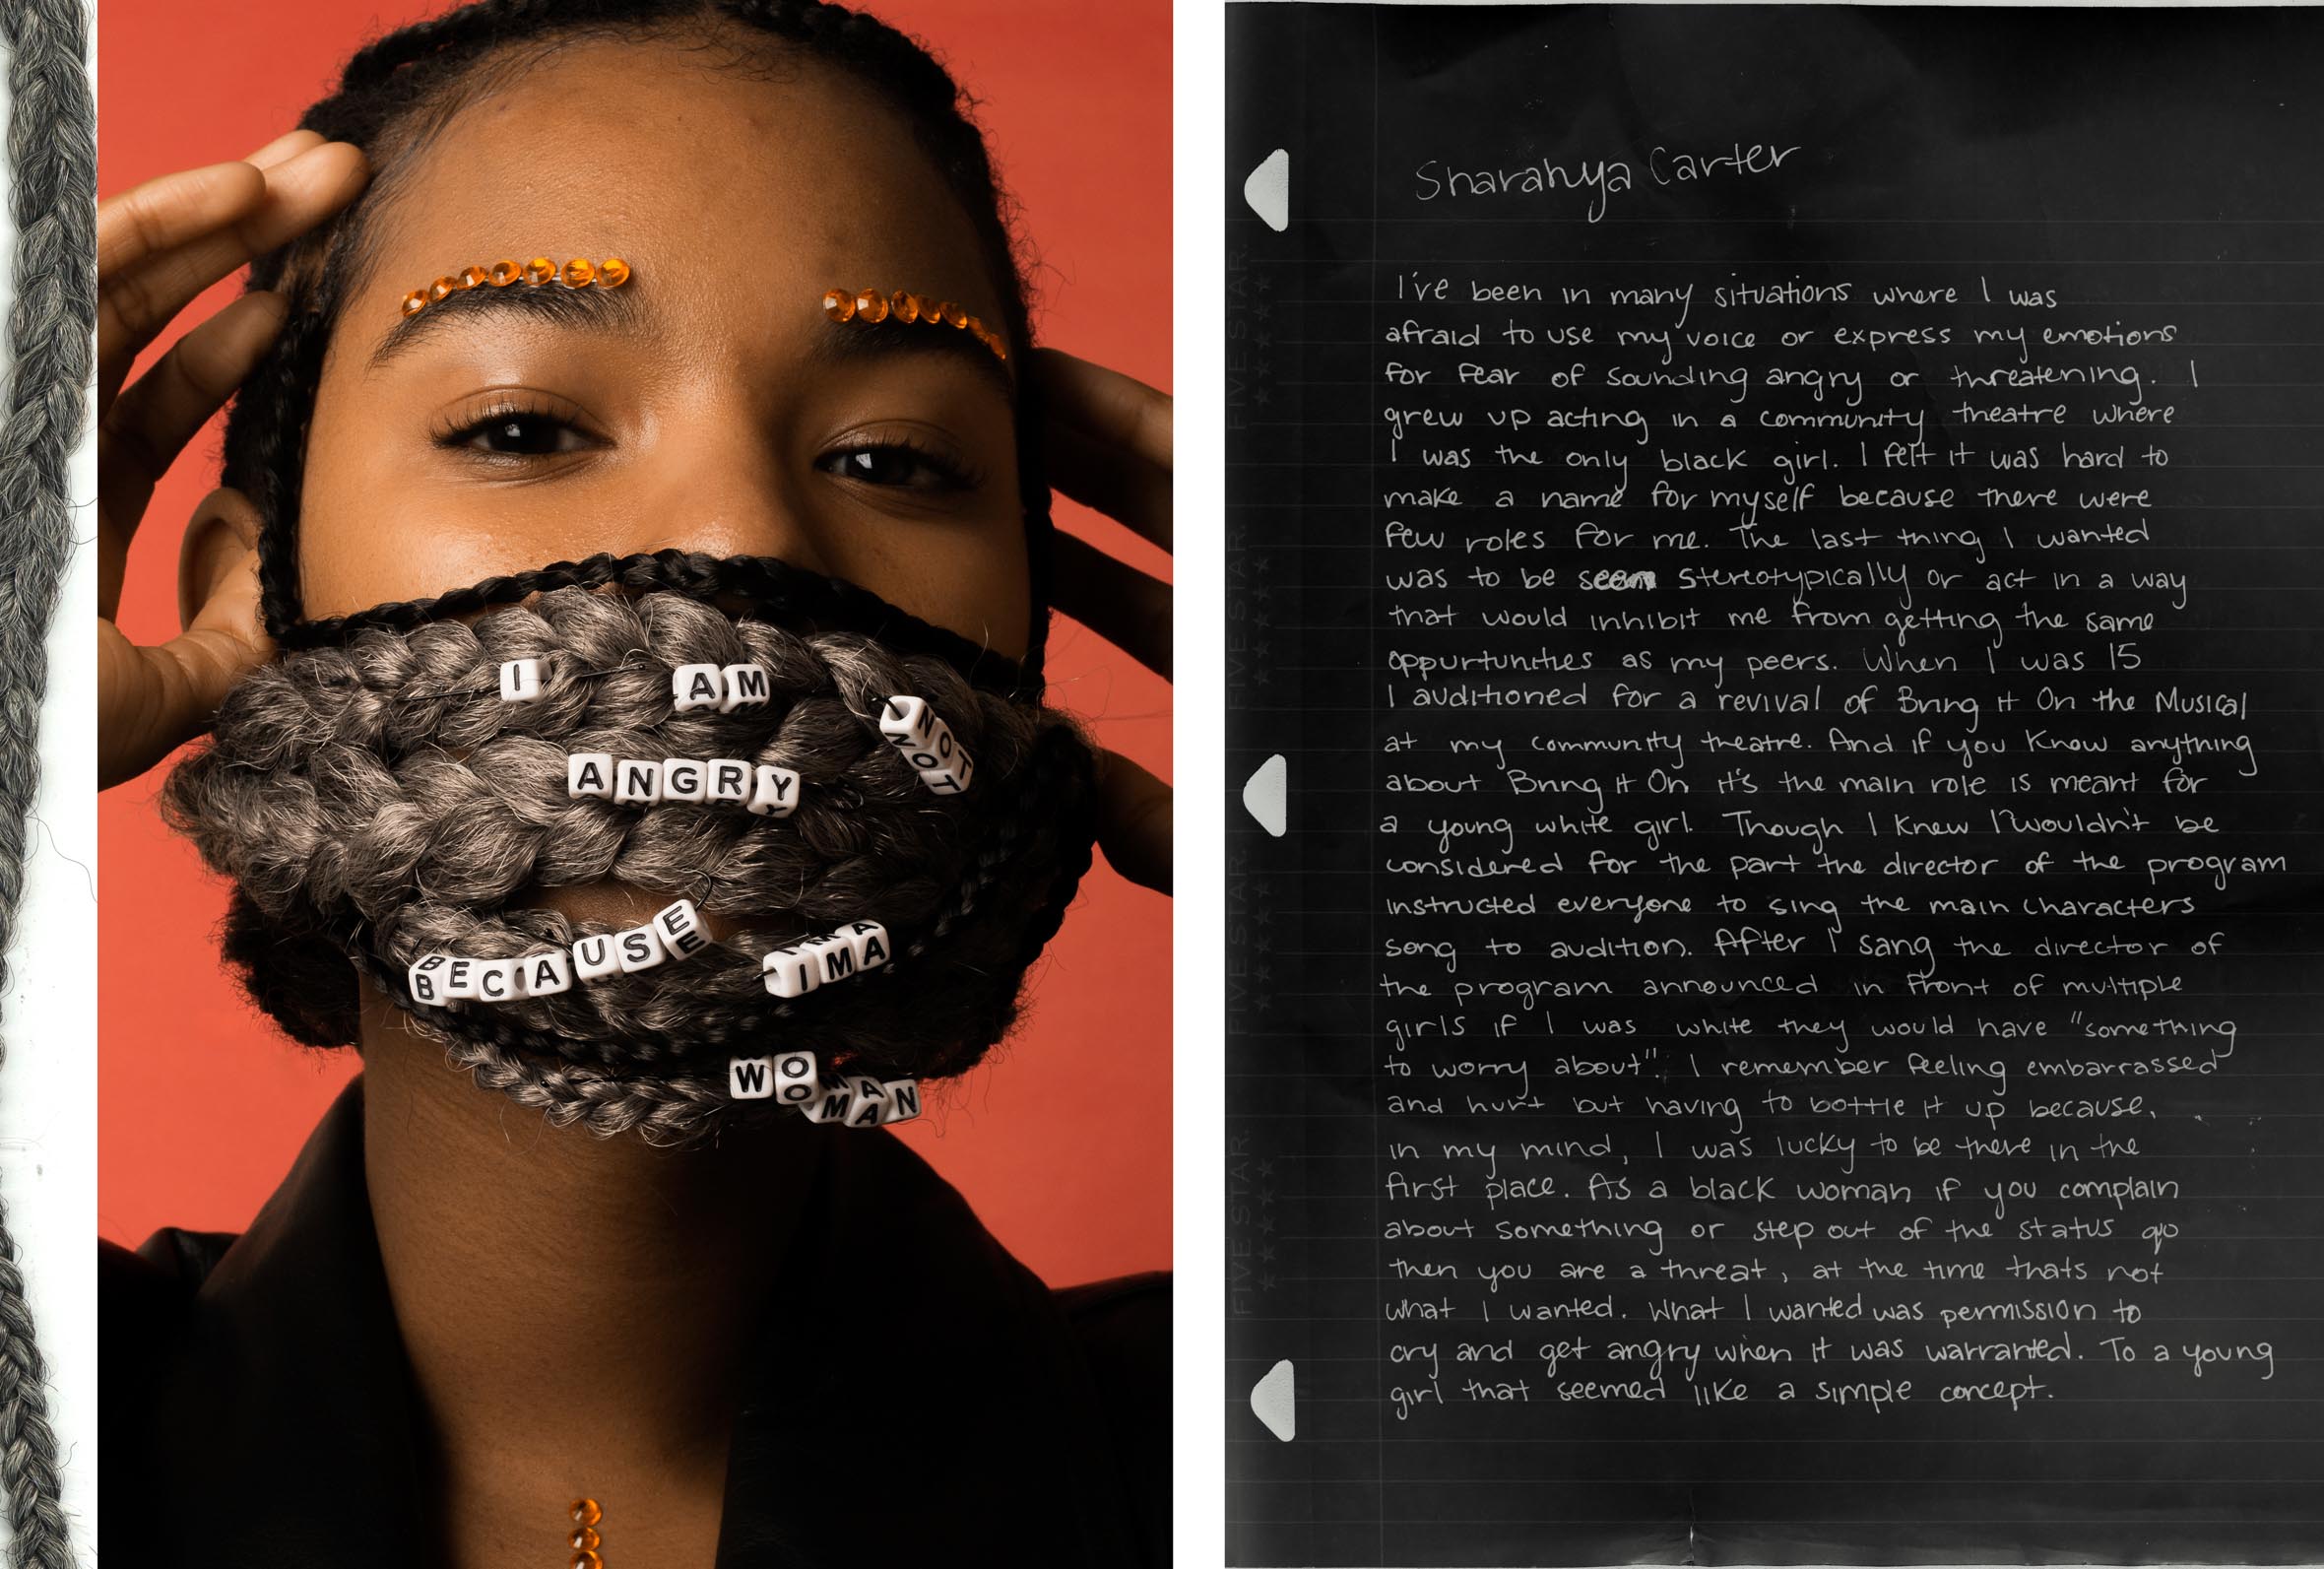 I AM
NOT
ANGRY
BECAUSE IMA
WOMAN
Sharahya Carter
I've been in many situations where I was
afraid to use my voice or express my emotions
for fear of sounding angry or threatening. I
grew up acting in a community theatre where
I was the only black girl. I felt it was hard to
make a name for myself because there were
few roles for me. The last thing I wanted
was to be seen stereotypically or act in a way
that would inhibit me from getting the same
oppurtunities as my peers. When I was 15
I auditioned for a revival of Bring it On the Musical
at my community theatre. And if you know anything
about Bring it On it's the main role is meant for
a young white girl. Though I knew I wouldn't be
considered for the part the director of the program
instructed everyone to sing the main characters
song to audition. After I sang the director of
the program announced in front of multiple
girls if I was white they would have "something
to worry about". I remember feeling embarrassed
and hurt but having to bottle it up because,
in my mind, I was lucky to be there in the
first place. As a black woman if you complain
about something or step out of the status quo
then you are a threat, at the time thats not
what I wanted. What I wanted was permission to
cry and get angry when it was warranted. To a young
girl that seemed like a simple concept.
FIVE STAR.
FIVE STAR.
FIVE STAR.
FIVE STAR.